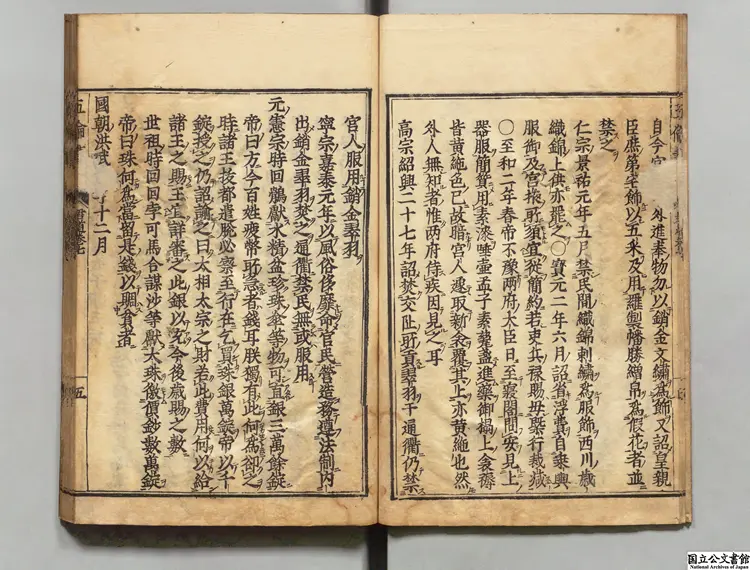 自今宮 外進奉物勿以銷金文繡為飾又詔皇親
臣庶第宅飾以五采及用羅製幡勝繒帛為假花者並
禁之
仁宗景祐元年五月禁民間織錦刺繡為服飾西川歲
織錦上供亦罷之〇寶元二年六月詔省浮費自乘輿
服御及宮掖所須宜從簡約若吏兵祿賜毋槩行裁減
〇至和二年春帝不豫兩府大臣日至寢閣問安見上
器服簡質用素漆唾壺盂子素甆盞進藥御榻上衾褥
皆黃絁色已故暗宮人遽取新衾覆其上亦黃絁也然
外人無知者惟兩府侍疾因見之耳
高宗紹興二十七年詔焚交阯所貢翠羽于通衢仍禁
宮人服用銷金翠羽
寧宗嘉泰元年以風俗侈靡命官民營造務遵法制內
出銷金翠羽焚之通衢禁民無或服用
元憲宗時回鶻獻水精盆珍珠傘等物可直銀三萬餘錠
帝曰方今百姓疲弊所急者錢耳朕獨有此何為卻之
時諸王拔都遣脫必察至行在乞買珠銀萬錠帝以千
錠授之仍詔諭之曰太祖太宗之財若此費用何以給
諸王之賜王宜詳審之此銀以充今後歲賜之數
世祖時回回孛可馬合謀沙等獻大珠徼價鈔數萬錠
帝曰珠何為當留是錢以賙貧者
國朝洪武 十二月
五倫
五
国立公文書館
National Archives of Japan